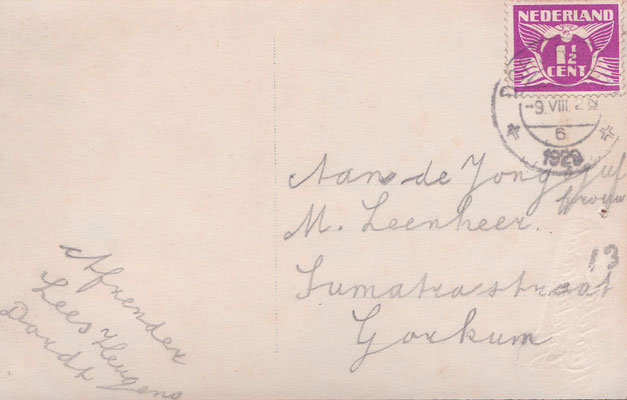 NEDERLAND
1½
CENT
-9.VIII
6
1929
Aan de Jong Juf
frouw
M. Leenheer.
13
Sumatrastraat
Gorkum
Afzender
Kees
Dordt